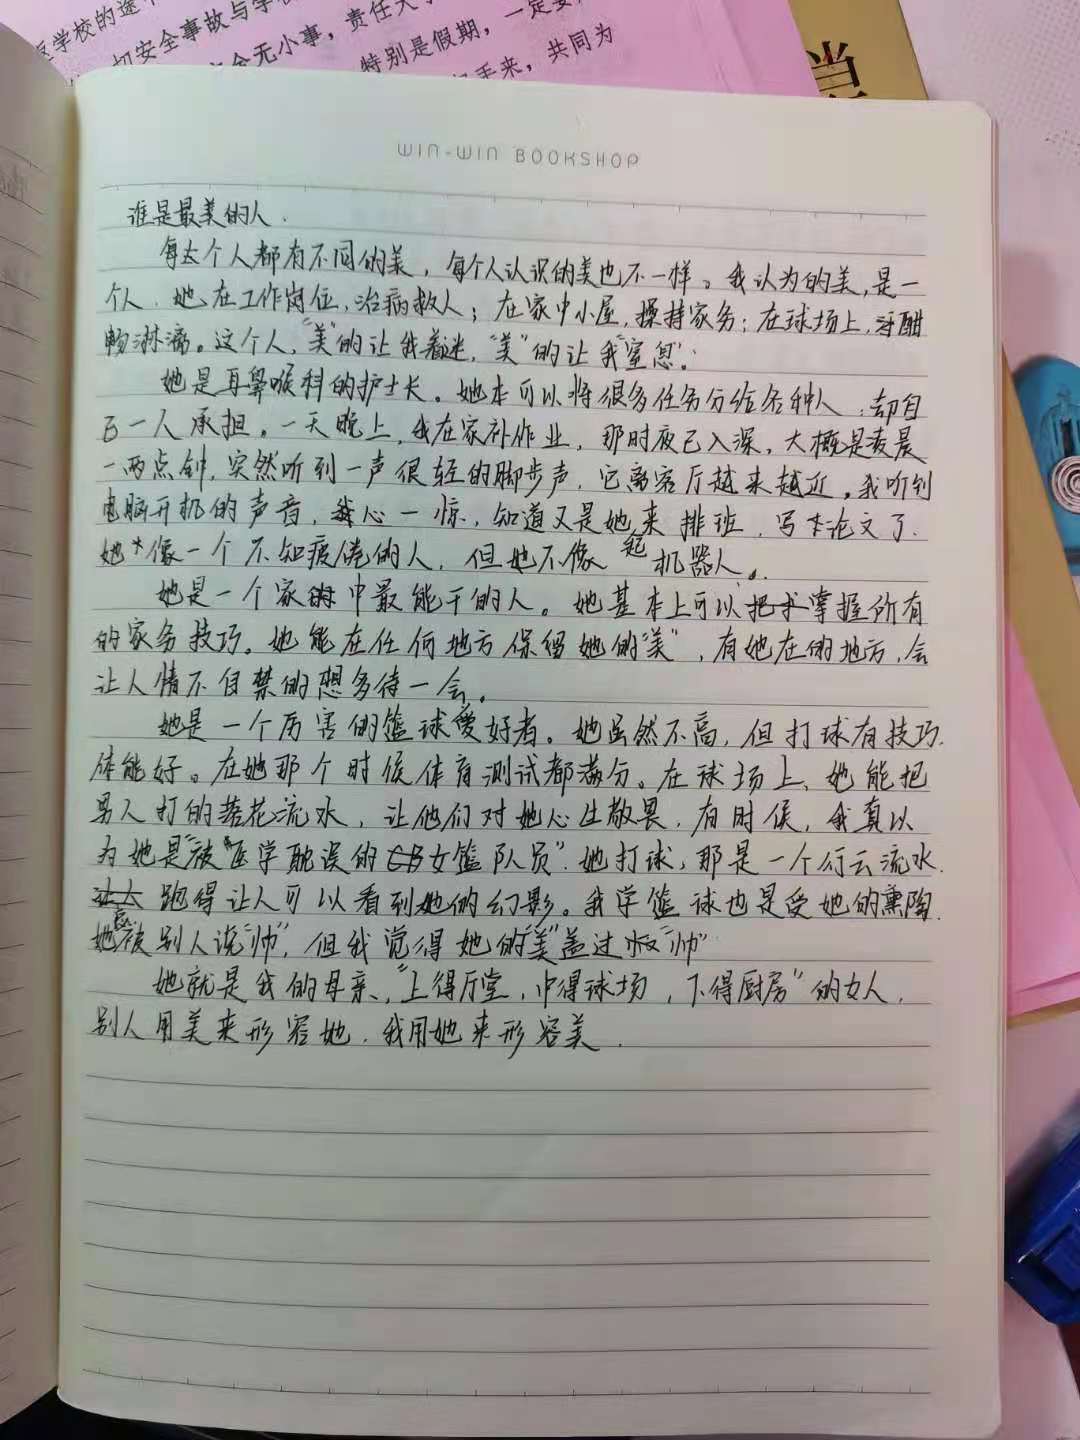 返学校的途
切安全事故与学校
安全无小事，责任大于
特别是假期，一定要
手来，共同为
当
WIN-WIN BOOKSHOP
谁是最美的人.
每个人都有不同的美，每个人认识的美也不一样。我认为的美，是一
个人.她在工作岗位，治病救人；在家中小屋，操持家务；在球场上，汗酣
畅淋漓。这个人，"美"的让我着迷，"美"的让我"窒息".
她是耳鼻喉科的护士长。她本可以将很多任务分给各种人，却自
己一人承担。一天晚上，我在家补作业，那时夜已入深，大概是凌晨
一两点钟，突然听到一声很轻的脚步声，它离客厅越来越近。我听到
电脑开机的声音，我心一惊，知道又是她来排班，写论文了.
她像一个不知疲倦的人，但她不像起机器人。
她是一个家中最能干的人。她基本上可以把掌握所有
的家务技巧。她能在任何地方保留她的"美"，有她在的地方，会
让人情不自禁的想多待一会。
她是一个厉害的篮球爱好者。她虽然不高，但打球有技巧.
体能好。在她那个时候体育测试都满分。在球场上，她能把
男人打的落花流水，让他们对她心生敬畏，有时候，我真以
为她是"被"医学耽误的女篮队员".她打球，那是一个行云流水.
跑得让人可以看到她的幻影。我学篮球也是受她的熏陶.
她被别人说"帅"，但我觉得她的"美"盖过"帅"
她就是我的母亲，"上得厅堂，中得球场，下得厨房"的女人，
别人用美来形容她，我用她来形容美.